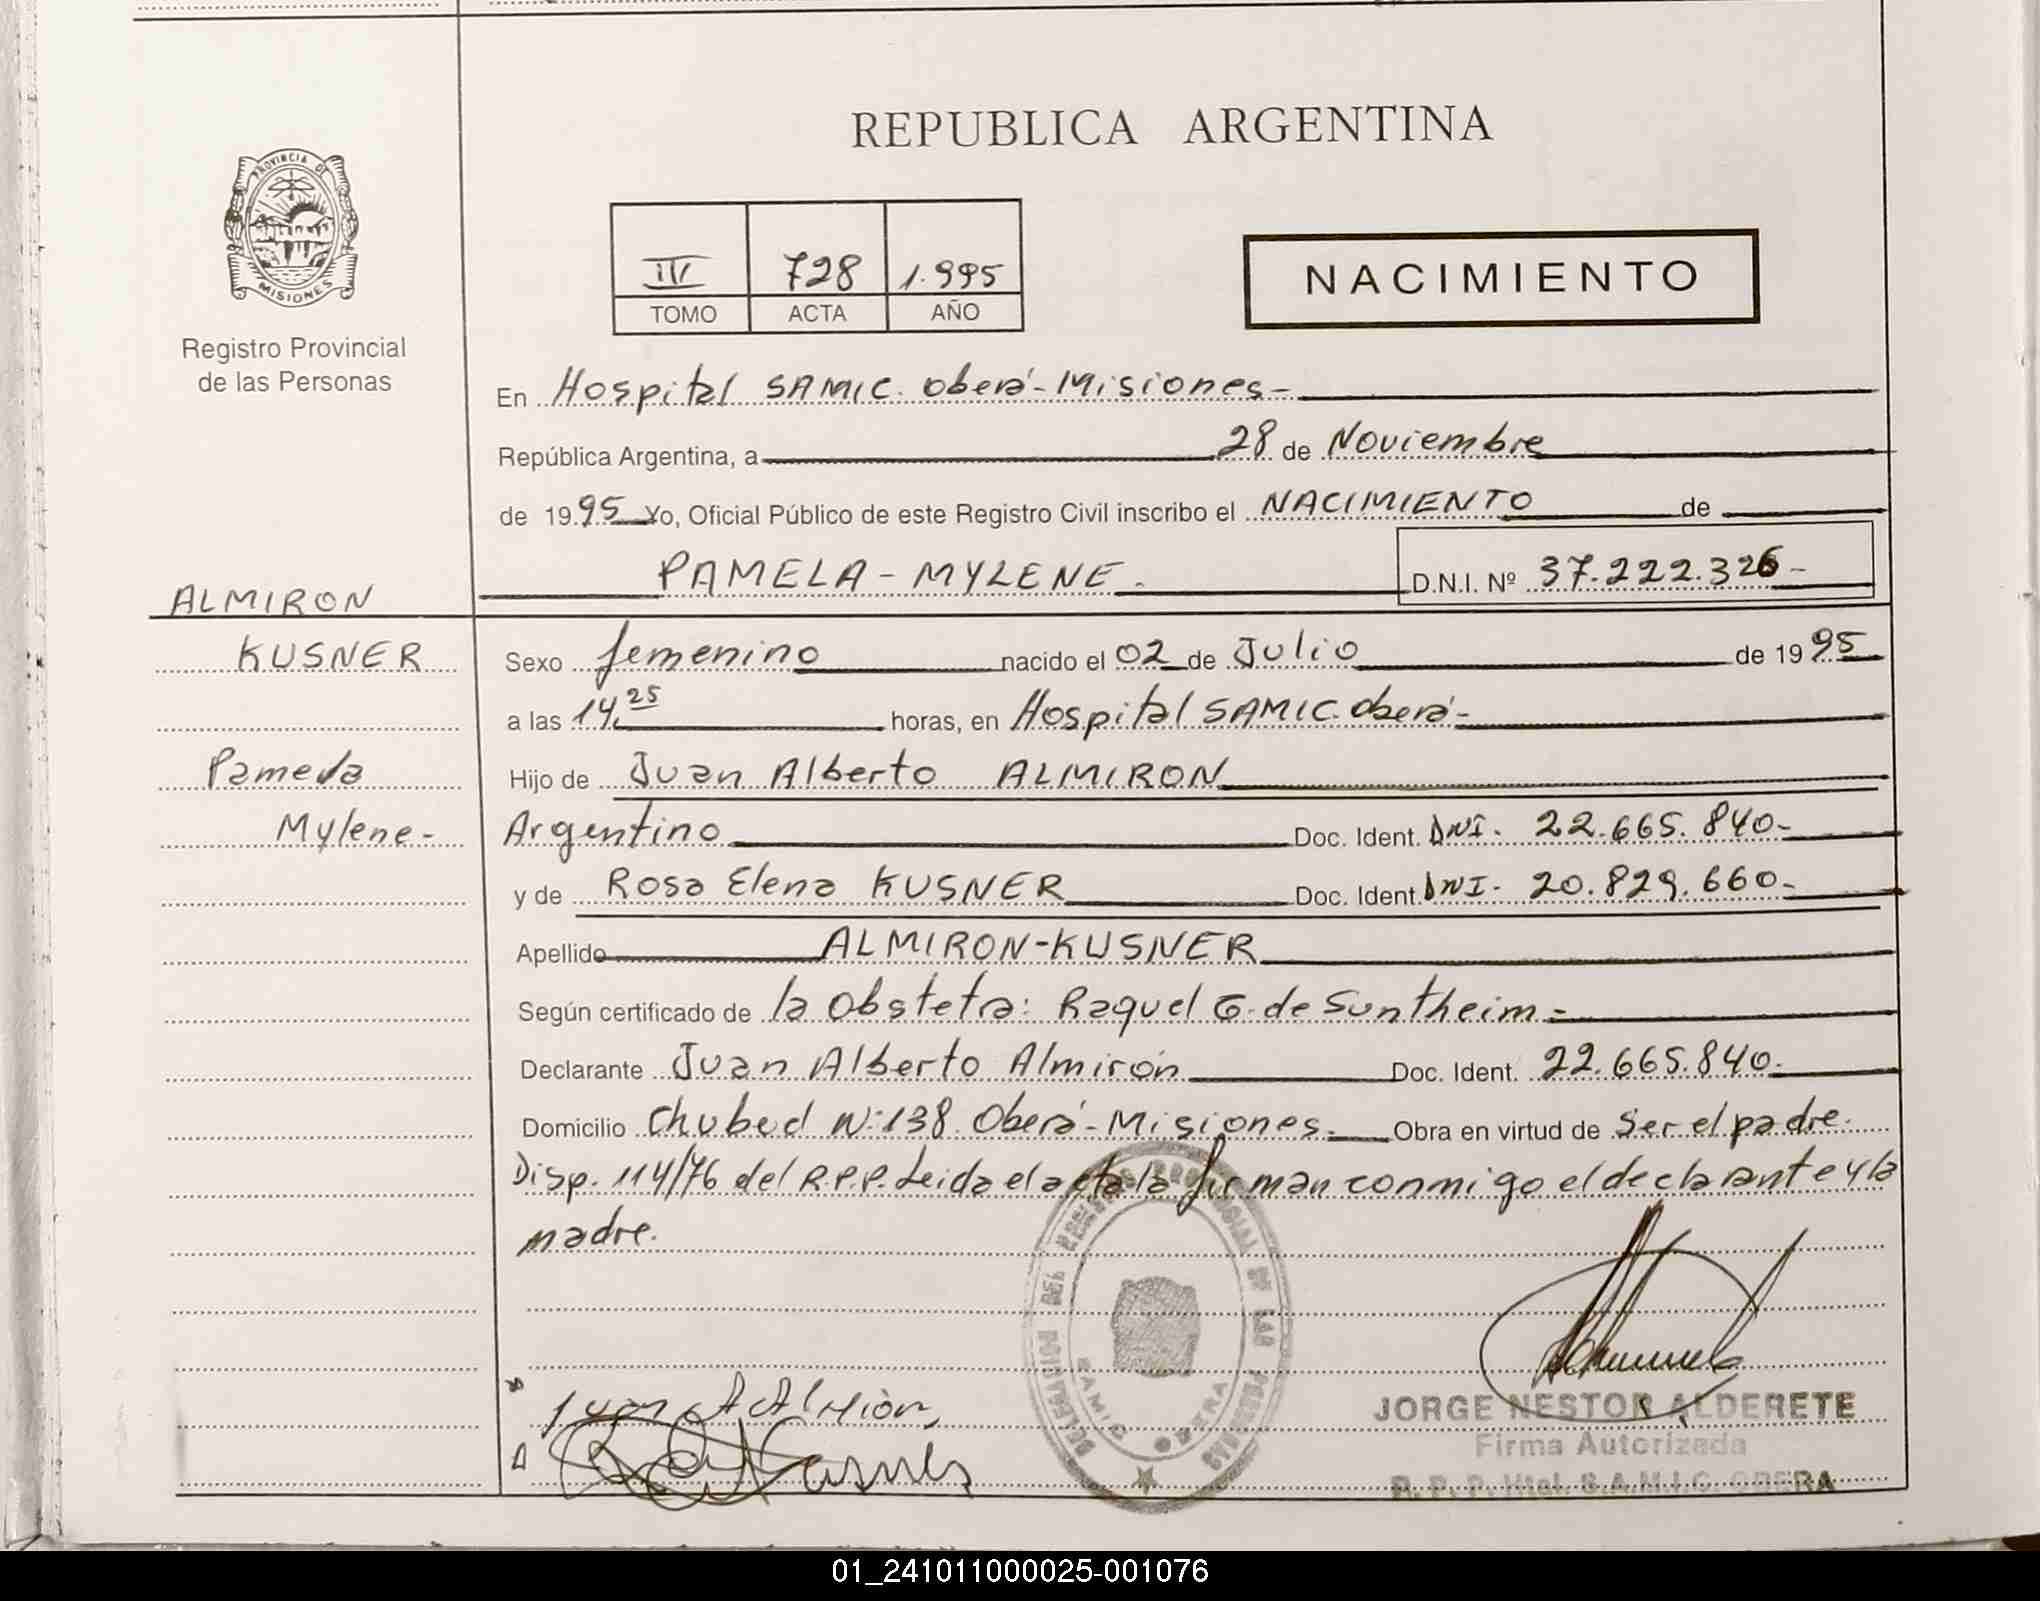 REPUBLICA ARGENTINA
PROVINCIA DE
MISIONES
Registro Provincial
de las Personas
III 728 1.995
TOMO ACTA AÑO
NACIMIENTO
En Hospital SAMIC. Oberá-Misiones-
República Argentina, a 28 de Noviembre
de 1995 Yo, Oficial Público de este Registro Civil inscribo el NACIMIENTO de
PAMELA-MYLENE. D.N.I. Nº 37.222.326-
ALMIRON
KUSNER
Pamela
Mylene-
Sexo femenino nacido el 02 de Julio de 1995
a las 14.25 horas, en Hospital SAMIC. Oberá-
Hijo de Juan Alberto ALMIRON
Argentino Doc. Ident. DNI. 22.665.840-
y de Rosa Elena KUSNER Doc. Ident. DNI. 20.829.660-
Apellido ALMIRON-KUSNER
Según certificado de la Obstetra: Raquel G. de Suntheim-
Declarante Juan Alberto Almirón Doc. Ident. 22.665.840-
Domicilio Chubud Nº138. Oberá-Misiones. Obra en virtud de Ser el padre.
Disp. 114/76 del R.P.P. Leida el acta la firman conmigo el declarante y la
madre.
DELEGACION DEL REGISTRO PROVINCIAL DE LAS PERSONAS
SAMIC OBERA
Juan A Almirón
JORGE NESTOR ALDERETE
Firma Autorizada
R. P. P. Htal. S.A.M.I.C. OBERA
01_241011000025-001076